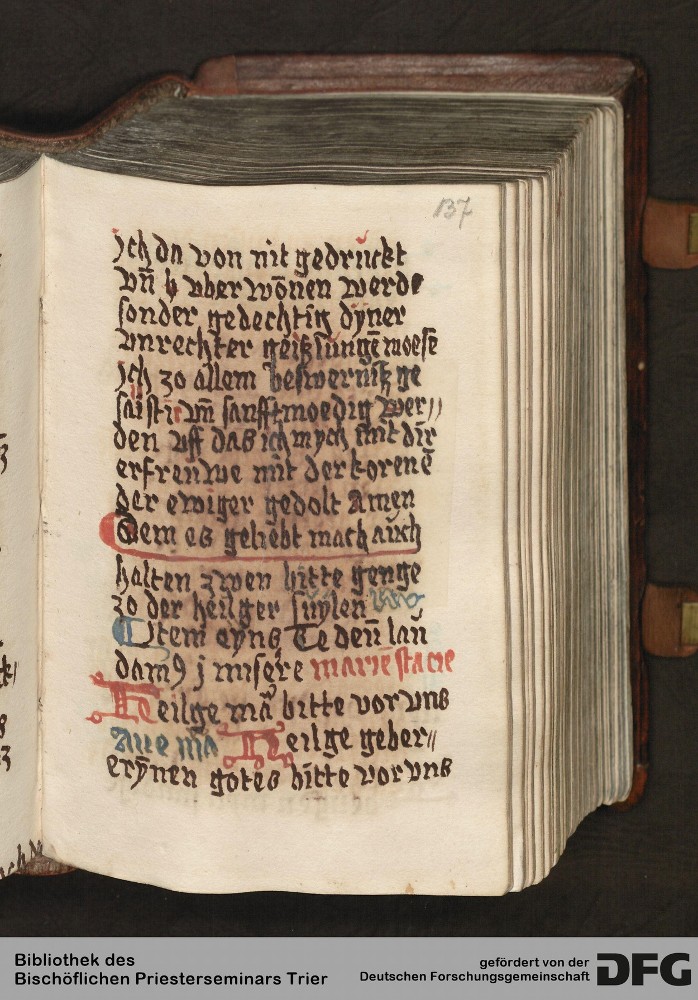 137
jch da von nit gedruckt
vn̄ h vber wōnen werde
sonder gedechtig dyner
vnrechter geiss sungē moesē
jch zo allem beswernisz ge
saistir vn̄ sanfftmoedig wer//
den vff das ich mych mit dir
erfreuwe mit der korenē
der ewiger gedolt Amen
Dem es geliebt mach auch
halten zwen bitte genge
zo der heilger suylen
Item eyns Te deū lau
damꝯ j misēre marie stacie
Heilge mā bitte vor vns
Aue mā Heilge geber//
erȳnen gotes bitte vor vns
Bibliothek des
Bischöflichen Priesterseminars Trier
gefördert von der
Deutschen Forschungsgemeinschaft DFG